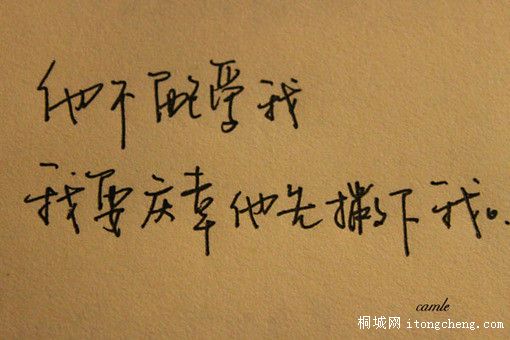 他不愿爱我
我要庆幸他先撇下我。
camle
桐城网 itongcheng.com